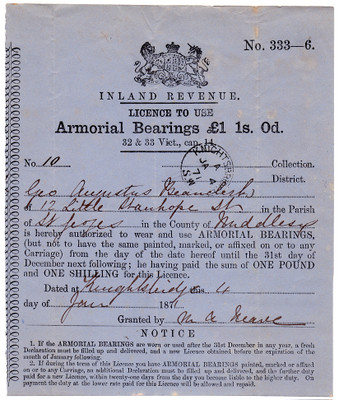 No. 333—6.
INLAND REVENUE.
LICENCE TO USE
Armorial Bearings £1 1s. 0d.
32 & 33 Vict., cap. 14.
KNIGHTSBR
No. 10 Collection.
District.
Geo Augustus Beamish
of 12 Little Stanhope St in the Parish
of St in the County of Middlesex
is hereby authorized to wear and use ARMORIAL BEARINGS,
(but not to have the same painted, marked, or affixed on or to any
Carriage) from the day of the date hereof until the 31st day of
December next following; he having paid the sum of ONE POUND
and ONE SHILLING for this Licence.
Dated at Knightsbridge this 4
day of Jany 1871
Granted by
NOTICE
1. If the ARMORIAL BEARINGS are worn or used after the 31st December in any year, a fresh
Declaration must be filled up and delivered, and a new Licence obtained before the expiration of the
month of January following.
2. If during the term of this Licence you have ARMORIAL BEARINGS painted, marked or affixed
on or to any Carriage, an additional Declaration must be filled up and delivered, and the further duty
paid for a new Licence, within twenty-one days from the day you become liable to the higher duty. On
payment the duty at the lower rate paid for this Licence will be allowed and repaid.